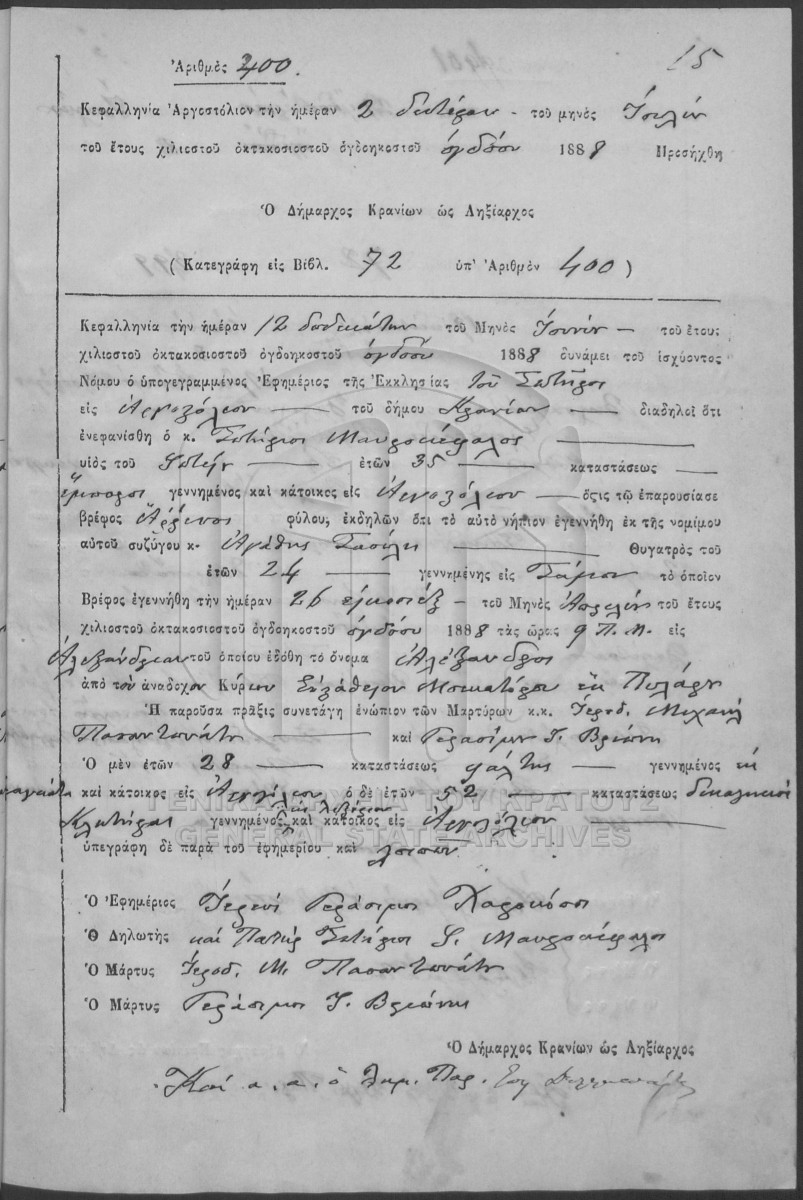 15
Ἀριθμὸς 400.
Κεφαλληνία Ἀργοστόλιον τὴν ἡμέραν 2 δευτέραν - τοῦ μηνὸς Ἰουλίου
τοῦ ἔτους χιλιοστοῦ ὀκτακοσιοστοῦ ὀγδοηκοστοῦ ὀγδόου 1888 Προσήχθη
Ὁ Δήμαρχος Κρανίων ὡς Ληξίαρχος
(Κατεγράφη εἰς Βιβλ. 72 ὑπ' Ἀριθμὸν 400)
Κεφαλληνία τὴν ἡμέραν 12 δωδεκάτην τοῦ Μηνὸς Ἰουνίου — τοῦ ἔτους
χιλιοστοῦ ὀκτακοσιοστοῦ ὀγδοηκοστοῦ ὀγδόου 1888 δυνάμει τοῦ ἰσχύοντος
Νόμου ὁ ὑπογεγραμμένος Ἐφημέριος τῆς Ἐκκλησίας τοῦ Σωτῆρος
εἰς Ἀργοστόλιον — τοῦ δήμου Κρανίων — διαδηλοῖ ὅτι
ἐνεφανίσθη ὁ κ. Σωτήριος Μαυροκέφαλος
υἱὸς τοῦ — ἐτῶν 35 — καταστάσεως —
ἔμπορος γεννημένος καὶ κάτοικος εἰς Ἀργοστόλιον — ὅςτις τῷ ἐπαρουσίασε
βρέφος Ἄρρενος φύλου, ἐκδηλῶν ὅτι τὸ αὐτὸ νήπιον ἐγεννήθη ἐκ τῆς νομίμου
αὐτοῦ συζύγου κ. Ἀγάθης — Θυγατρὸς τοῦ
ἐτῶν 24 — γεννημένης εἰς Σάμον τὸ ὁποῖον
Βρέφος ἐγεννήθη τὴν ἡμέραν 26 εἰκοσιέξ — τοῦ Μηνὸς Ἀπριλίου τοῦ ἔτους
χιλιοστοῦ ὀκτακοσιοστοῦ ὀγδοηκοστοῦ ὀγδόου 1888 τὰς ὥρας 9 Π. Μ. εἰς
Ἀλεξάνδρειαν τοῦ ὁποίου ἐδόθη τὸ ὄνομα Ἀλέξανδρος
ἀπὸ τὸν ἀνάδοχον Κύριον Εὐστάθιον ἐκ
Ἡ παροῦσα πρᾶξις συνετάγη ἐνώπιον τῶν Μαρτύρων κ.κ. Ἱεροδ. Μιχαὴλ
— καὶ Γεράσιμον Ι. Βριώνη
Ὁ μὲν ἐτῶν 28 — καταστάσεως ψάλτης — γεννημένος
καὶ κάτοικος εἰς Ἀργοστόλιον ὁ δὲ ἐτῶν 52 — καταστάσεως δικαστικὸς
Κλητήρας γεννημένος καὶ κάτοικος εἰς Ἀργοστόλιον
ὑπεγράφη δὲ παρὰ τοῦ ἐφημερίου καὶ λοιπῶν
ΓΕΝΙΚΑ ΑΡΧΕΙΑ ΤΟΥ ΚΡΑΤΟΥΣ
GENERAL STATE ARCHIVES
Ὁ Ἐφημέριος Ἱερεὺς Γεράσιμος
Ὁ Δηλωτὴς καὶ Πατὴρ Σωτήριος Μαυροκέφαλος
Ὁ Μάρτυς Ἱεροδ. Μ.
Ὁ Μάρτυς Γεράσιμος Ι. Βριώνης
Ὁ Δήμαρχος Κρανίων ὡς Ληξίαρχος
Καὶ α. α. ὁ Δημ. Παρ.